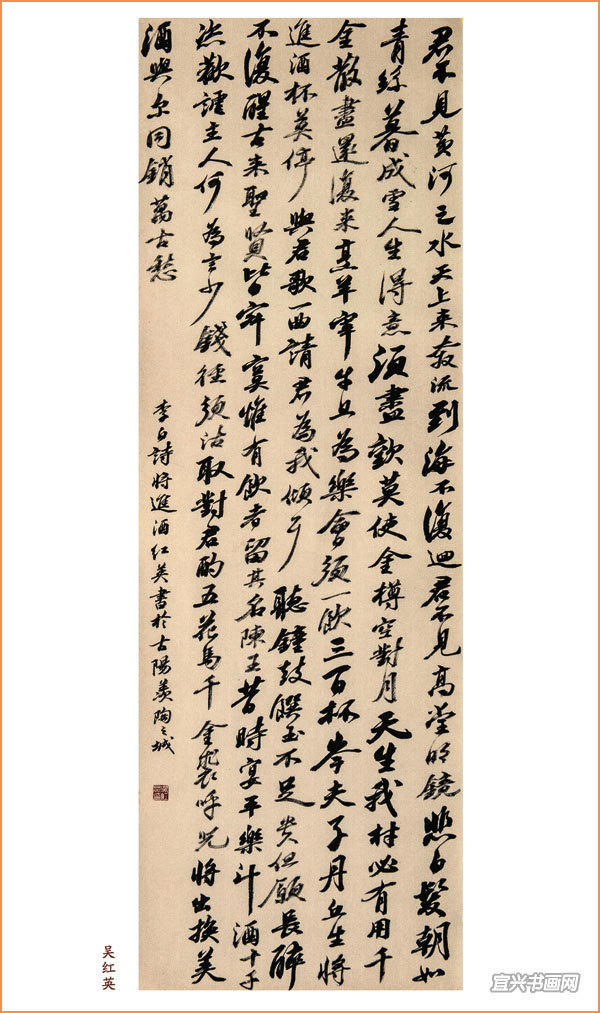 君不見黃河之水天上來奔流到海不復迴君不見高堂明鏡悲白髮朝如
青絲暮成雪人生得意須盡歡莫使金樽空對月天生我材必有用千
金散盡還復來烹羊宰牛且為樂會須一飲三百杯岑夫子丹丘生將
進酒杯莫停與君歌一曲請君為我傾耳聽鐘鼓饌玉不足貴但願長醉
不復醒古來聖賢皆寂寞惟有飲者留其名陳王昔時宴平樂斗酒十千
恣歡謔主人何為言少錢徑須沽取對君酌五花馬千金裘呼兒將出換美
酒與尔同銷萬古愁
李白詩將進酒紅英書於古陽羨陶之城
吴红英
宜兴书画网